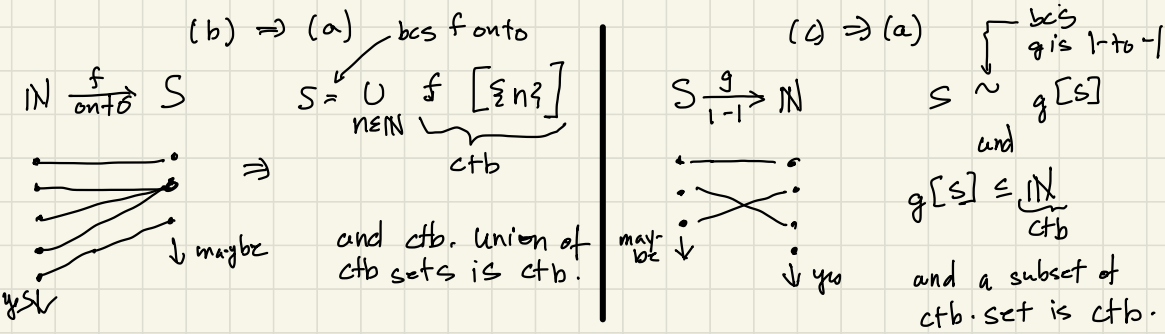 (b) ⇒ (a)
bcs f onto
ℕ f onto → S
S = ∪ n∈ℕ f [{n}]
ctb
⇒
maybe
yes
and ctb. union of
ctb sets is ctb.
(c) ⇒ (a)
bcs
g is 1-to-1
S g 1-1 → ℕ
S ~ g[S]
and
g[S] ⊆ ℕ
ctb
may-
be
yes
and a subset of
ctb. set is ctb.